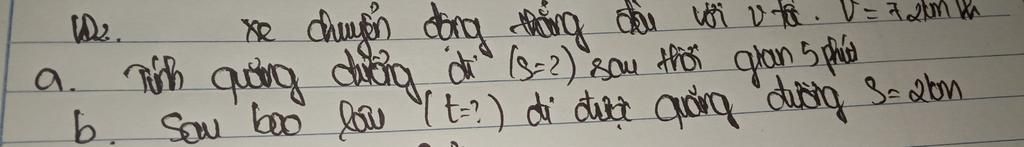 VD2. xe chuyển động thẳng đều với v tốc. V = 72km/h
a. Tính quãng đường đi (s=?) sau thời gian 5 phút
b. Sau bao lâu (t=?) đi được quãng đường S = 2km